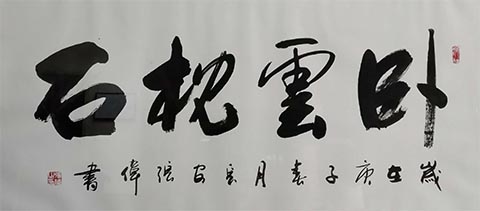 卧雲枕石
歲在庚子春月長安張偉書